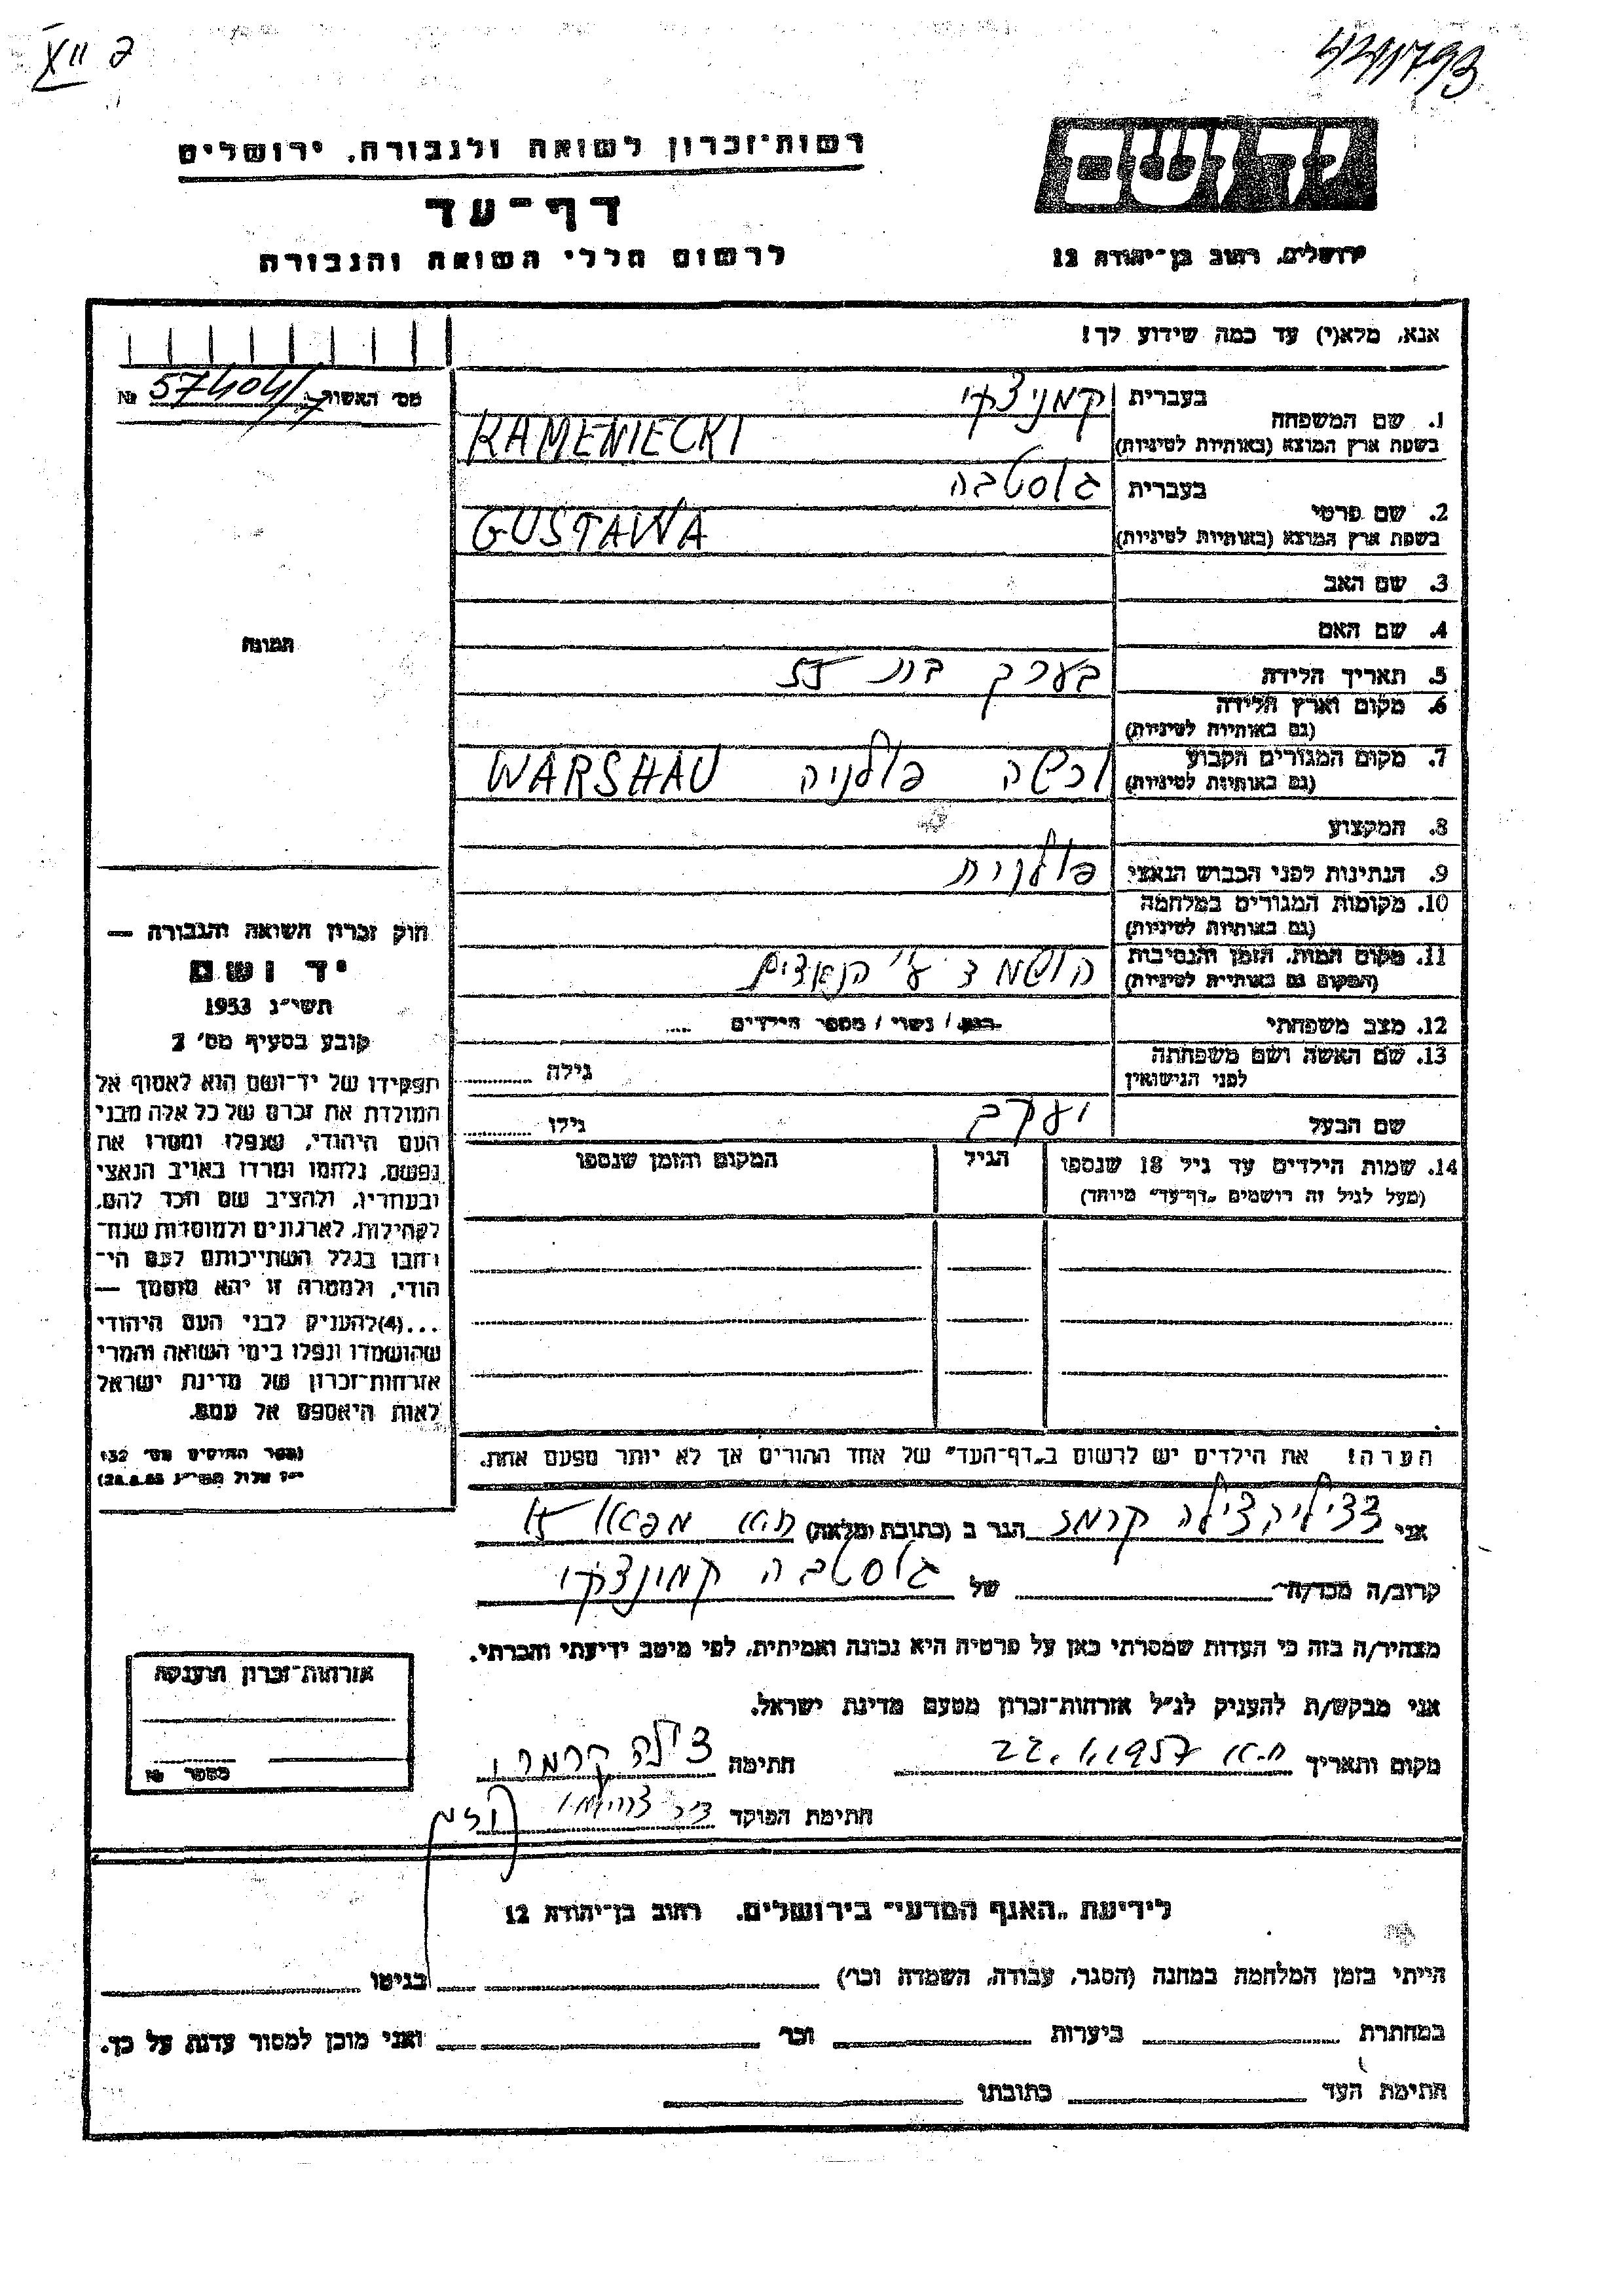 רשות־זכרון לשואה ולגבורה, ירושלים
דף־עד
לרשום חללי השואה והגבורה
יד ושם
ירושלים, רחוב בן־יהודה 12
אנא, מלא(י) עד כמה שידוע לך!
מס׳ האשור
№
1. שם המשפחה בעברית קמניצקי
בשפת ארץ המוצא (באותיות לטיניות) KAMENIECKI
2. שם פרטי בעברית גוסטבה
בשפת ארץ המוצא (באותיות לטיניות) GUSTAWA
3. שם האב
4. שם האם
5. תאריך הלידה בערך בת 55
6. מקום וארץ הלידה
(גם באותיות לטיניות)
7. מקום המגורים הקבוע ורשה פולניה WARSHAU
(גם באותיות לטיניות)
8. המקצוע
9. הנתינות לפני הכבוש הנאצי פולנית
10. מקומות המגורים במלחמה
(גם באותיות לטיניות)
11. מקום המות, הזמן והנסיבות הושמד ע״י הנאצים
(המקום גם באותיות לטיניות)
12. מצב משפחתי רווק / נשוי / מספר הילדים ....
13. שם האשה ושם משפחתה גילה
לפני הנישואין
שם הבעל יעקב גילו
14. שמות הילדים עד גיל 18 שנספו הגיל המקום והזמן שנספו
(מעל לגיל זה רושמים „דף־עד״ מיוחד)
הערה! את הילדים יש לרשום ב„דף־העד״ של אחד ההורים אך לא יותר מפעם אחת.
תמונה
חוק זכרון השואה והגבורה —
יד ושם
תשי״ג 1953
קובע בסעיף מס׳ 2
תפקידו של יד־ושם הוא לאסוף אל
המולדת את זכרם של כל אלה מבני
העם היהודי, שנפלו ומסרו את
נפשם, נלחמו ומרדו באויב הנאצי
ובעוזריו, ולהציב שם וזכר להם,
לקהילות, לארגונים ולמוסדות שנח־
רבו בגלל השתייכותם לעם הי־
הודי, ולמטרה זו יהא מוסמך —
...(4)להעניק לבני העם היהודי
שהושמדו ונפלו בימי השואה והמרי
אזרחות־זכרון של מדינת ישראל
לאות היאספם אל עמם.
(ספר החוקים מס׳ 132
י״ז אלול תשי״ג 28.8.53)
אני צילה קרמר הגר ב (כתובת מלאה) ת״א
קרוב/ה מכר/ה של גוסטבה קמינצקי
מצהיר/ה בזה כי העדות שמסרתי כאן על פרטיה היא נכונה ואמיתית, לפי מיטב ידיעתי והכרתי.
אני מבקש/ת להעניק לנ״ל אזרחות־זכרון מטעם מדינת ישראל.
מקום ותאריך ת״א 22.1.1957 חתימה צילה קרמר
חתימת הפוקד
אזרחות־זכרון הוענקה
מספר №
לידיעת „האגף המדעי״ בירושלים, רחוב בן־יהודה 12
הייתי בזמן המלחמה במחנה (הסגר, עבודה, השמדה וכו׳) בגיטו
במחתרת ביערות וכו׳ ואני מוכן למסור עדות על כך.
חתימת העד כתובתו